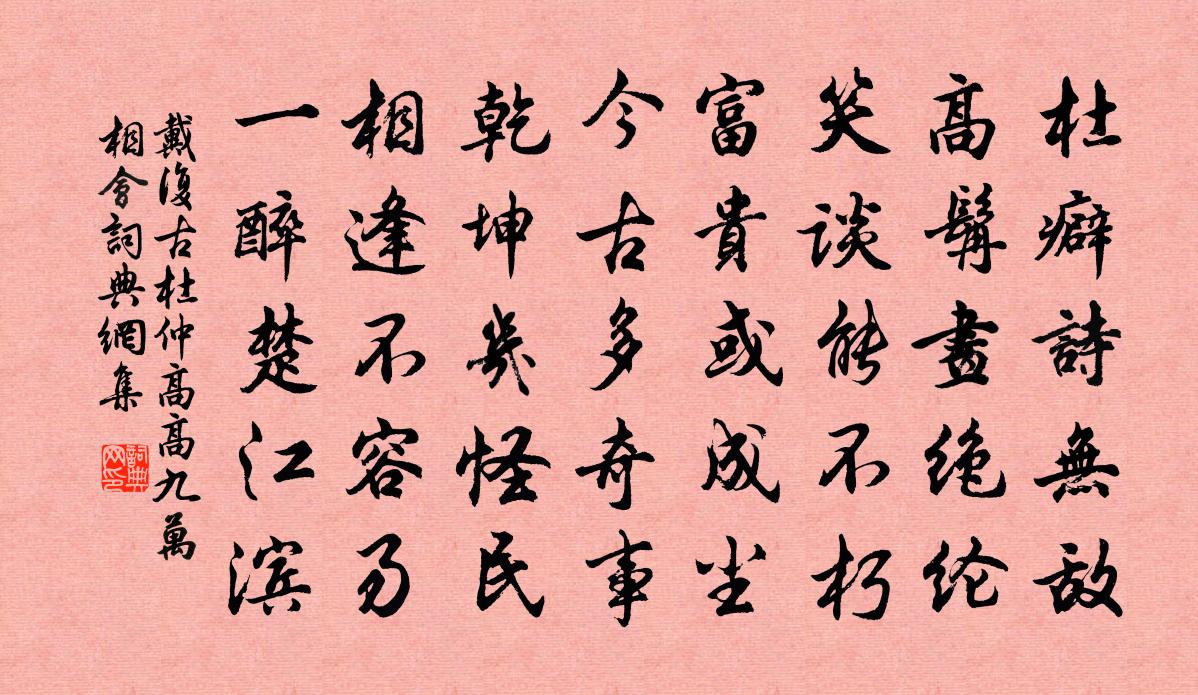 杜癖詩無敵
高髯畫絕伦
笑談能不朽
富貴或成尘
今古多奇事
乾坤幾怪民
相逢不容易
一醉楚江滨
戴復古杜仲高高九萬
相會詞典網集
詞典网印